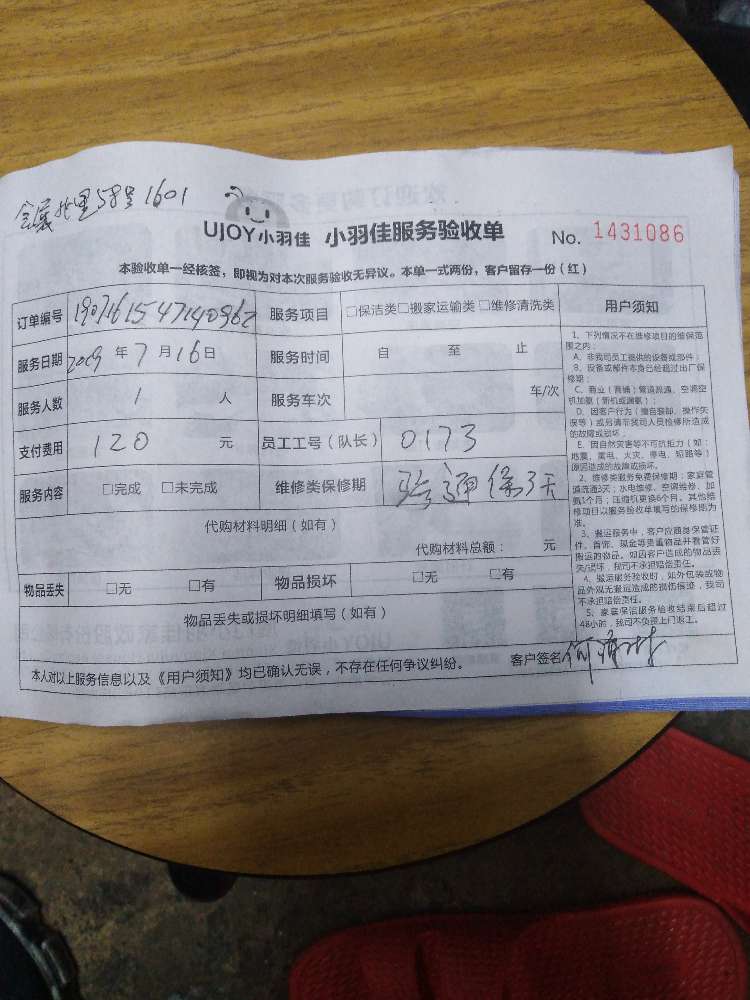 1601
UJOY小羽佳 小羽佳服务验收单 No. 1431086
本验收单一经核签，即视为对本次服务验收无异议。本单一式两份，客户留存一份（红）
订单编号 服务项目 □保洁类□搬家运输类□维修清洗类 用户须知
服务日期 2019 年 7 月 16 日 服务时间 自 至 止
服务人数 1 人 服务车次 车/次
支付费用 120 元 员工工号（队长） 0173
服务内容 □完成 □未完成 维修类保修期 通保3天
代购材料明细（如有）
代购材料总额： 元
物品丢失 □无 □有 物品损坏 □无 □有
物品丢失或损坏明细填写（如有）
本人对以上服务信息以及《用户须知》均已确认无误，不存在任何争议纠纷。 客户签名
1、下列情况不在维修项目的维保范
围之内：
A、非我司员工提供的设备或部件；
B、设备或部件本身已经超过出厂保
修期；
C、商业（商铺）管道疏通、空调空
机加氟（新机或漏氟）；
D、因客户行为（擅自装卸、操作失
误等）或另请非我司人员检修所造成
的故障或损坏；
E、因自然灾害等不可抗拒力（如：
地震、雷电、火灾、停电、短路等）
原因造成的故障或损坏。
2、维修类服务免费保修期：家庭管
道疏通3天；水电维修、空调维修、加
氟1个月；压缩机更换6个月。其他维
修项目以服务验收单填写的保修期为
准。
3、搬运服务中，客户应随身保管证
件、首饰、现金等贵重物品并看管好
搬运的物品。如因客户造成的物品丢
失/损坏，我司不承担赔偿责任。
4、搬运服务验收时，如外包装或物
品外观无搬运造成的损伤痕迹，我司
不承担赔偿责任。
5、家庭保洁服务验收结束后超过
48小时，我司不负责上门返工。